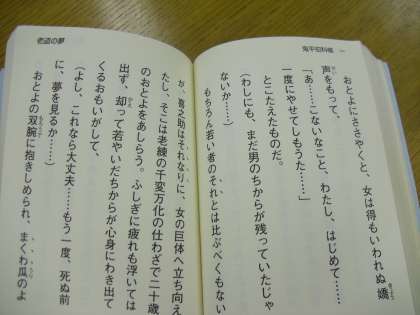 鬼平犯科帳 一
おとよにささやくと、女は得もいわれぬ嬌
声をもって、
「あ……こないなこと、わたし、はじめて……
一度にやせてしもうた……」
とこたえたものだ。
(わしにも、まだ男のちからが残っていたじゃ
ないか……)
もちろん若い者のそれとは比ぶべくもない
老盗の夢
が、喜之助はそれなりに、女の巨体へ立ち向え
たし、そこは老練の千変万化の仕わざで二十歳
のおとよをあしらう。ふしぎに疲れも浮いては
出ず、却って若やいだちからが心身にわき出て
くるおもいがして、
(よし、これなら大丈夫……もう一度、死ぬ前
に、夢を見るか……)
おとよの双腕に抱きしめられ、まくわ瓜のよ